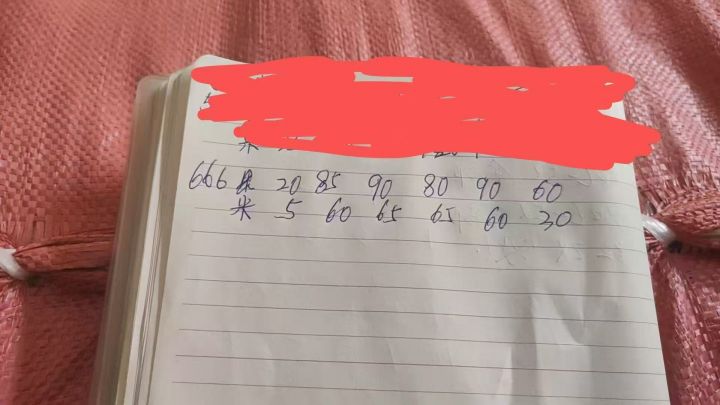 666 20 85 90 80 90 60
米 5 60 65 65 60 30